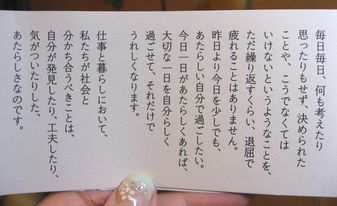 毎日毎日、何も考えたり
思ったりもせず、決められた
ことや、こうでなくては
いけないというようなことを、
ただ繰り返すくらい、退屈で
疲れることはありません。
昨日より今日を少しでも、
あたらしい自分で過ごしたい。
今日一日があたらしくあれば、
大切な一日を自分らしく
過ごせて、それだけで
うれしくなります。
仕事と暮らしにおいて、
私たちが社会と
分かち合うべきことは、
自分が発見したり、工夫したり、
気がついたりした、
あたらしさなのです。